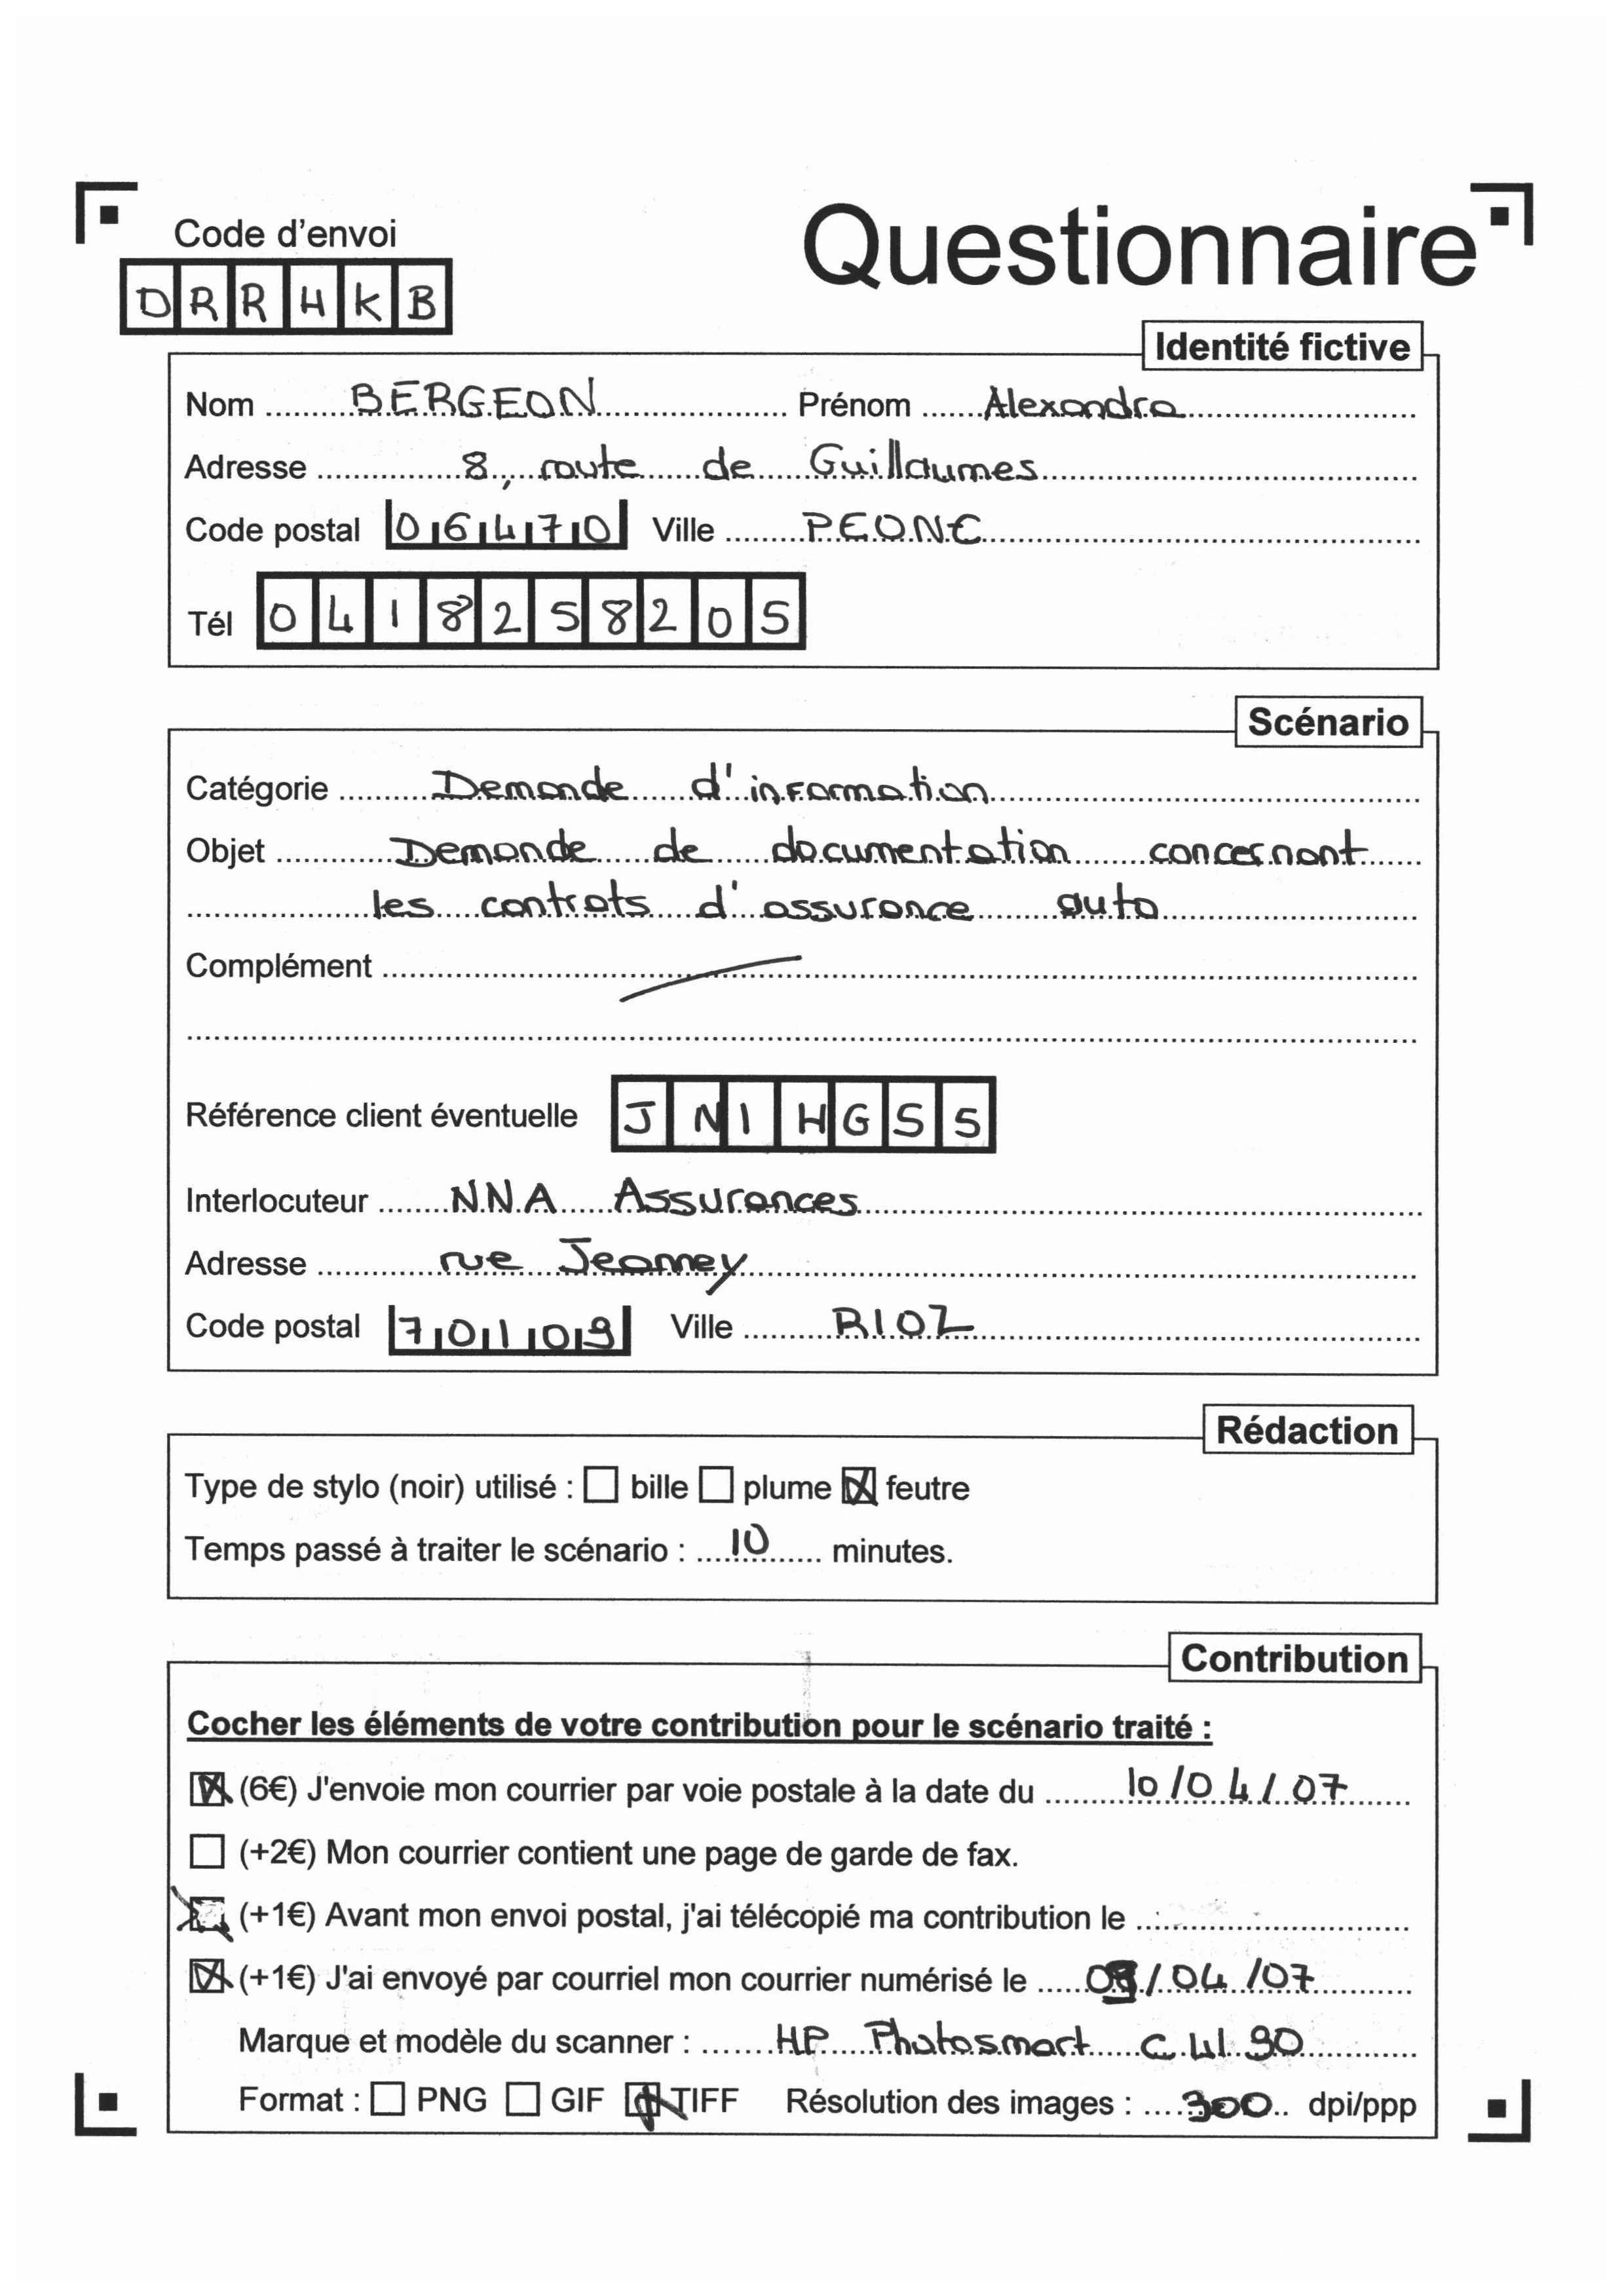 Code d'envoi
Questionnaire
DRRHKB
Identité fictive
Nom BERGEON Prénom Alexandra
Adresse 8, route de Guillaumes
Code postal 06470 Ville PEONE
Tél 0418258205
Scénario
Catégorie Demande d'information
Objet Demande de documentation concernant
les contrats d'assurance auto
Complément
Référence client éventuelle JNIHGSS
Interlocuteur NNA Assurances
Adresse rue Jeanney
Code postal 70109 Ville RIOZ
Rédaction
Type de stylo (noir) utilisé : bille plume feutre
Temps passé à traiter le scénario : 10 minutes.
Contribution
Cocher les éléments de votre contribution pour le scénario traité :
(6€) J'envoie mon courrier par voie postale à la date du 10/04/07
(+2€) Mon courrier contient une page de garde de fax.
(+1€) Avant mon envoi postal, j'ai télécopié ma contribution le
(+1€) J'ai envoyé par courriel mon courrier numérisé le /04/07
Marque et modèle du scanner : HP Photosmart C4190
Format : PNG GIF TIFF Résolution des images : 300 dpi/ppp